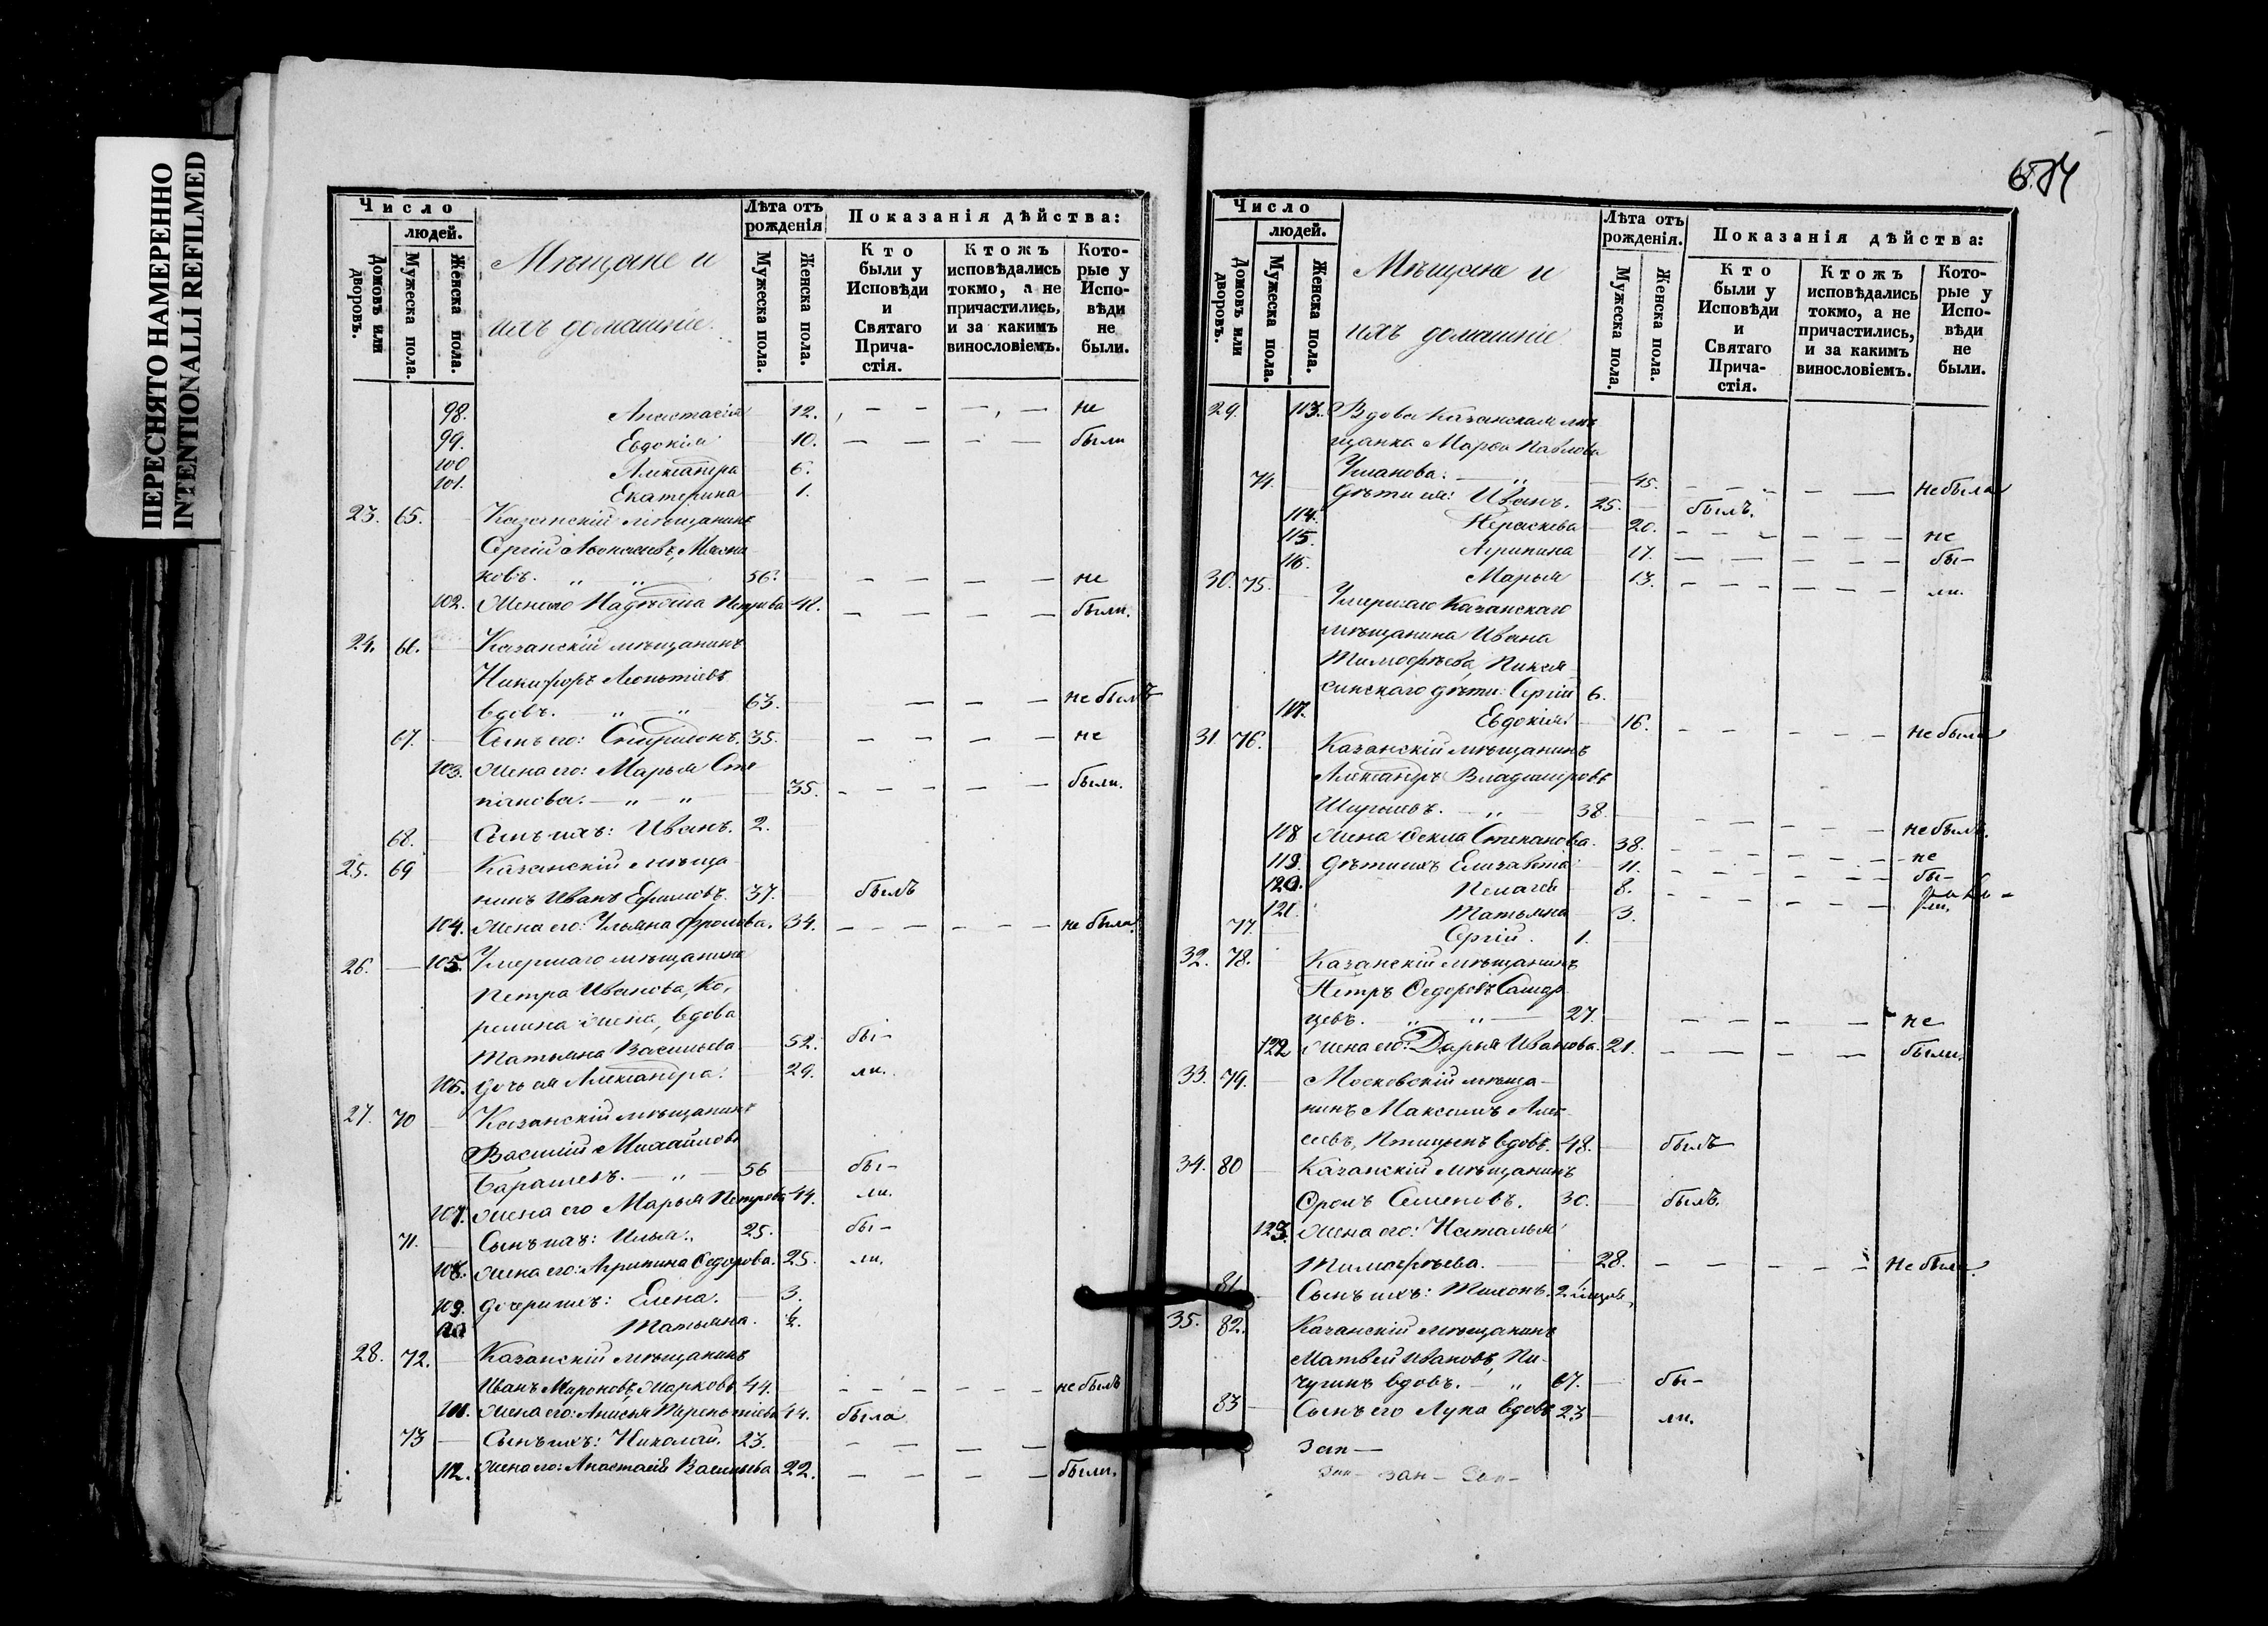 ПЕРЕСНЯТО НАМЕРЕННО
INTENTIONALLI REFILMED
Число
людей.
Домовъ или дворовъ.
Мужеска пола.
Женска пола.
Мѣщане и
ихъ домашніе.
Лѣта отъ рожденія
Мужеска пола.
Женска пола.
Показанія дѣйства:
Кто были у Исповѣди и Святаго Прича-стія.
Ктожъ исповѣдались токмо, а не причастились, и за какимъ винословіемъ.
Кото-рые у Испо-вѣди не были.
98. Анастасія — 12. — — — — не
99. Евдокія — 10. — — — — были
100 Александра — 6.
101. Екатерина — 1.
23. 65. — Казанскій мѣщанинъ
Сергій
ковъ. „ „ 56. — — — — — не
102. Жена его Надежда Петрова 48. — — — — были.
24. 66. — Казанскій мѣщанинъ
Никифоръ Леонтіевъ
вдовъ. — „ — „ 63. — — — — не былъ
67. — Сынъ его: Спиридонъ. 35. — — — — — не
103. Жена его: Марья Сте
панова. — „ — „ — 35. — — — — — были.
68. — Сынъ ихъ: Иванъ. 2.
25. 69 — Казанскій мѣща
нинъ Иванъ Ефимовъ. 37. — былъ
104. Жена его: Ульяна Фролова. 34. — — — — — — не была.
26. — 105. Умершаго мѣщанина
Петра Иванова, Ко,
релина жена, вдова
Татьяна Васильева — 52. бы-
106. дочь ея Александра. — 29. ли.
27. 70 — Казанскій мѣщанинъ
Василій Михайловъ
Барашевъ. — „ — 56 — бы-
107. Жена его Марья Петрова 44. ли.
71. — Сынъ ихъ: Илья. 25. бы-
108. Жена его: Агрипина Ѳедорова. 25. ли.
109. дочери ихъ: Елена. — 3.
110 Татьяна. ½.
28. 72. — Казанскій мѣщанинъ
Иванъ Мироновъ, Марковъ. 44. — — — — — — не былъ
111. Жена его: Анисья Терентіева 44. была
73 — Сынъ ихъ: Николай. 23. — — — — —
112. Жена его: Анастасія Васильева 22. — — — — были.
Число
людей.
Домовъ или дворовъ.
Мужеска пола.
Женска пола.
Мѣщане и
ихъ домашніе
Лѣта отъ рожденія.
Мужеска пола.
Женска пола.
Показанія дѣйства:
Кто были у Исповѣди и Святаго Прича-стія.
Ктожъ исповѣдались токмо, а не причастились, и за какимъ винословіемъ.
Кото-рые у Испо-вѣди не были.
29. 113. Вдова Казанская мѣ
щанка Марѳа Павлова
Уланова. — „ — 45. — — — — — не была
74. — дѣти ея: Иванъ. 25. — былъ.
114. Параскева — 20. — — — — — — не
115. Агрипина — 17. — — — — — бы-
116. Марья — 13. — — — — — — ли.
30. 75. — Умершаго Казанскаго
мѣщанина Ивана
Тимофѣева,
синскаго дѣти: Сергій 6. —
117. Евдокія. — 16. — — — — — не были
31. 76. — Казанскій мѣщанинъ
Александръ Владиміровъ
— „ — 38. — — — — — — не былъ.
118 Жена Ѳекла Степанова. 38. — — — — — — не
119. дѣти ихъ Елизавета — 11. — — — — — — бы-
120. Пелагея — 8. — — — — — — ли.
121. Татьяна — 3.
77. — Сергій. 1. —
32. 78. — Казанскій мѣщанинъ
Петръ Ѳедоровъ Самар
цевъ. — „ — „ — 27. — — — — — не
122 Жена его: Дарья Иванова. 21. — — — — были.
33. 79. — Московскій мѣща-
нинъ Максимъ Алек
сѣевъ, Птицынъ вдовъ. 48. — былъ
34. 80 — Казанскій мѣщанинъ
Фролъ Семеновъ. 30. — былъ.
123. Жена его: Наталья
Тимофѣева. — — 28. — — — — — — Не была.
81 — Сынъ ихъ: Тихонъ. 2.
35. 82. Казанскій мѣщанинъ
Матвѣй Ивановъ, Пи-
чугинъ вдовъ. — „ 67. — бы-
83 — Сынъ его Лука вдовъ 23 — ли.